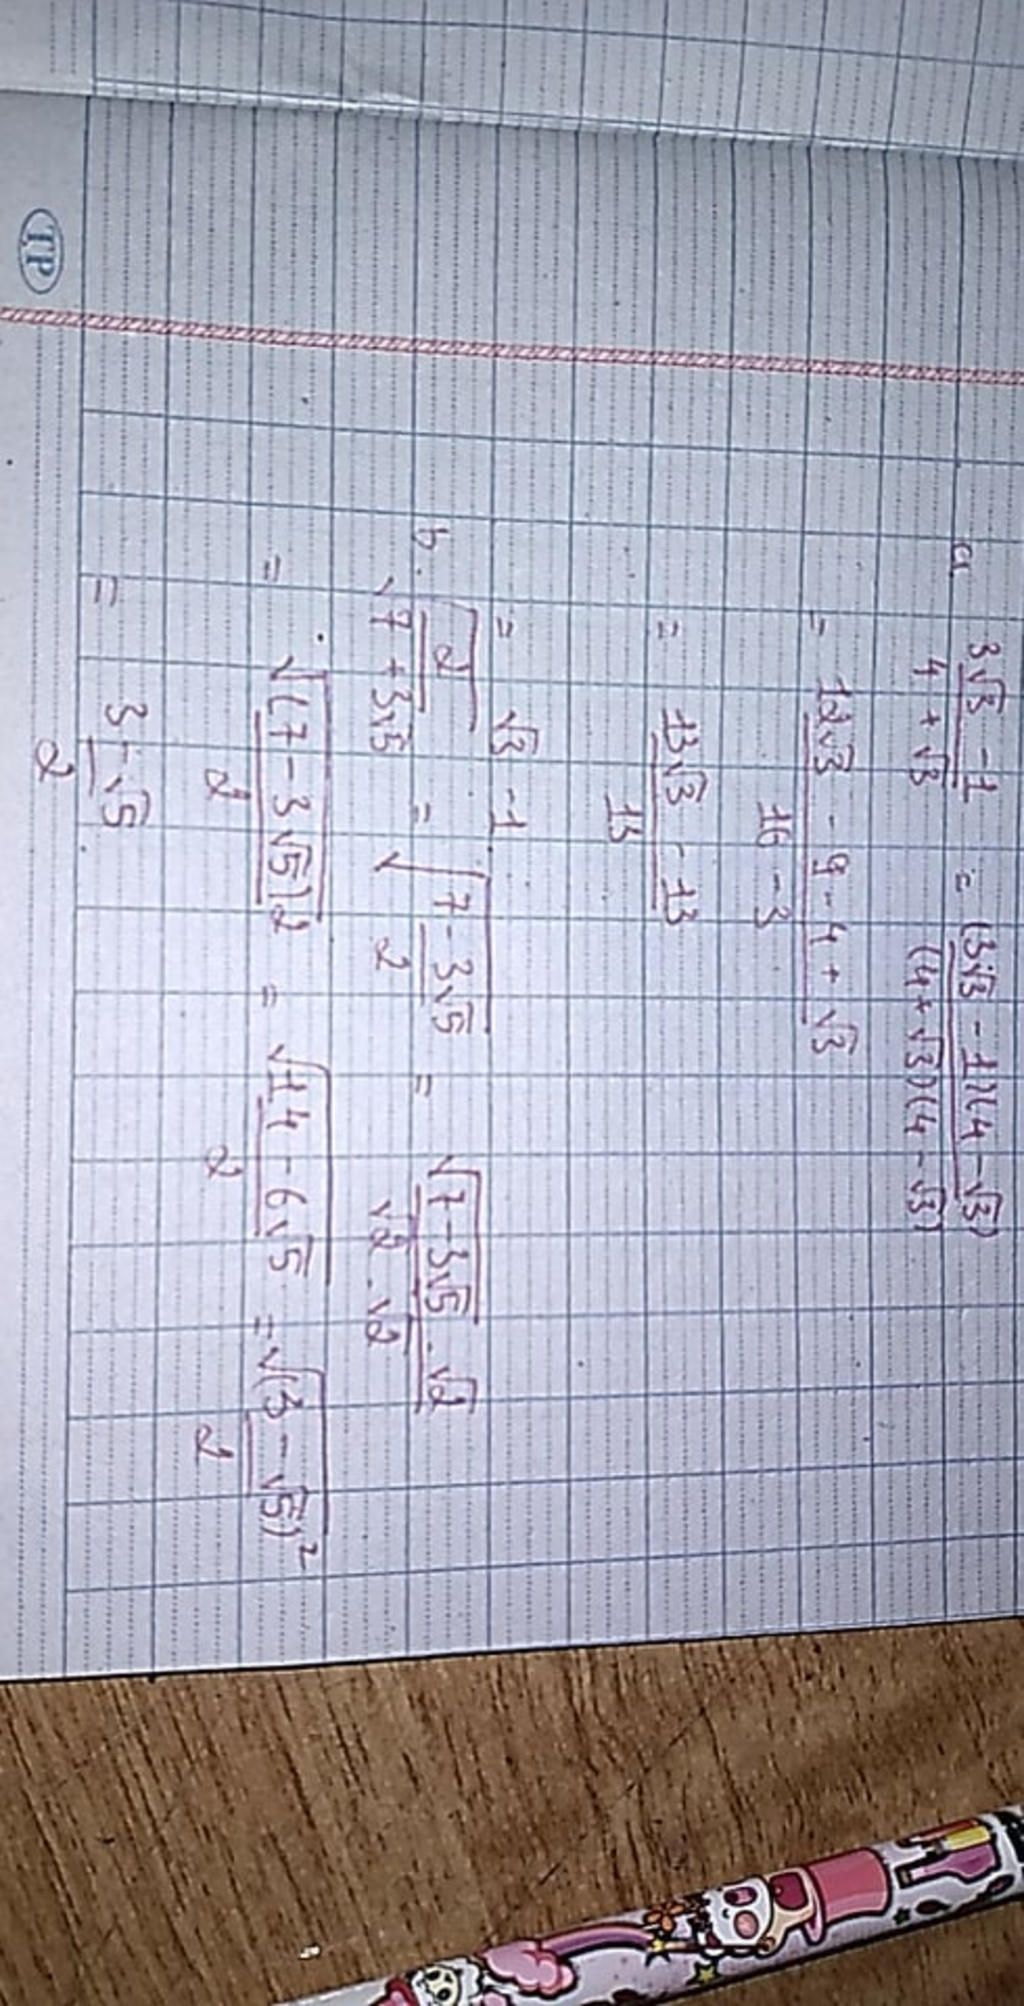 a. (3√3 - 1)/(4 + √3) = ((3√3 - 1)(4 - √3))/((4 + √3)(4 - √3))
= (12√3 - 9 - 4 + √3)/(16 - 3)
= (13√3 - 13)/13
= √3 - 1
b. √(2/(7 + 3√5)) = √((7 - 3√5)/2) = (√(7 - 3√5) . √2)/(√2 . √2)
= √((7 - 3√5)2)/2 = √(14 - 6√5)/2 = √((3 - √5)²)/2
= (3 - √5)/2
TP